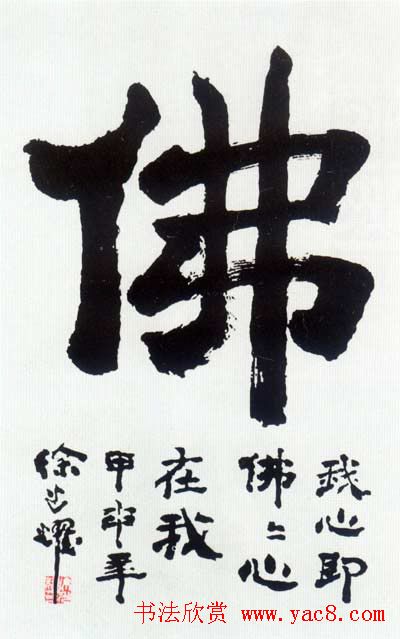 佛
我心即
佛々心
在我
甲申年
徐 耀
书法欣赏 www.yac8.com